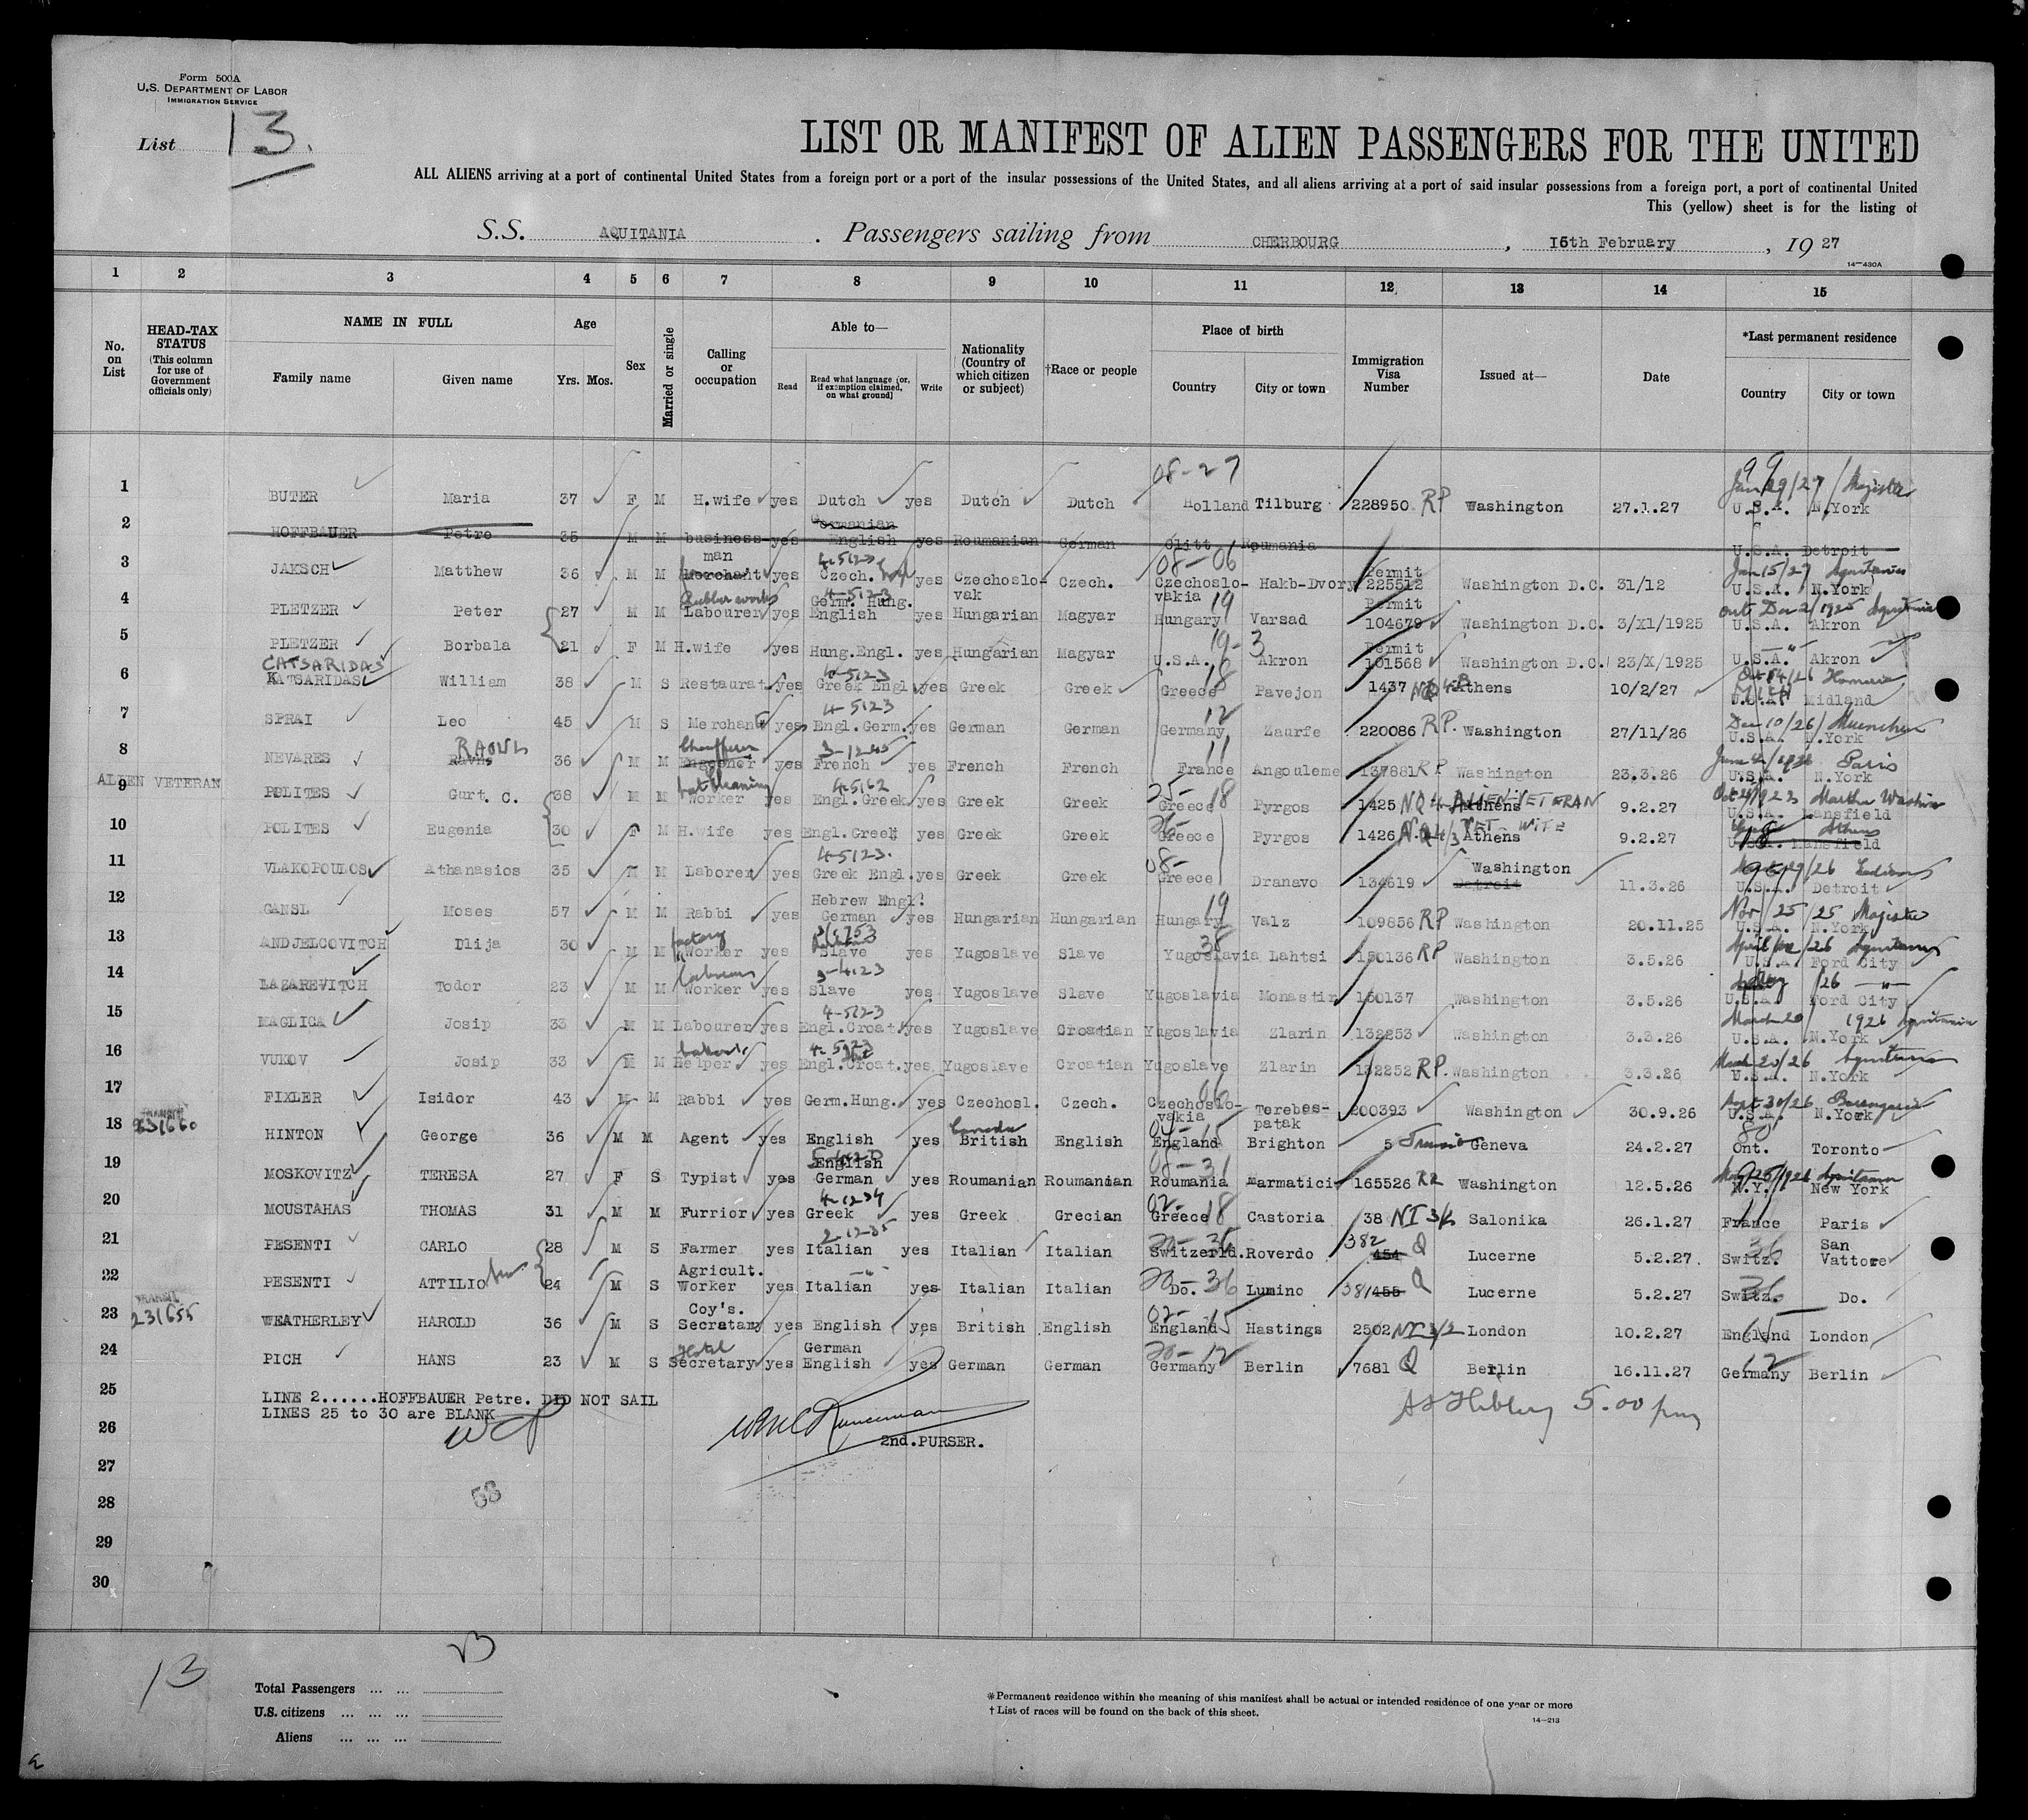 Form 500A
U.S. DEPARTMENT OF LABOR
IMMIGRATION SERVICE
List 13.
LIST OR MANIFEST OF ALIEN PASSENGERS FOR THE UNITED
ALL ALIENS arriving at a port of continental United States from a foreign port or a port of the insular possessions of the United States, and all aliens arriving at a port of said insular possessions from a foreign port, a port of continental United
This (yellow) sheet is for the listing of
S.S. AQUITANIA . Passengers sailing from CHERBOURG , 15th February , 19 27
14—430A
1 2 3 4 5 6 7 8 9 10 11 12 13 14 15
No. on List HEAD-TAX STATUS (This column for use of Government officials only) NAME IN FULL Family name Given name Age Yrs. Mos. Sex Married or single Calling or occupation Able to— Read Read what language [or, if exemption claimed, on what ground] Write Nationality (Country of which citizen or subject) †Race or people Place of birth Country City or town Immigration Visa Number Issued at— Date *Last permanent residence Country City or town
08-27 99
Jan 29/27 / Majestic
1 BUTER Maria 37 F M H.wife yes Dutch yes Dutch Dutch Holland Tilburg 228950 RP Washington 27.1.27 U.S.A. N.York
2 HOFFBAUER Petre 35 M M business man yes Germanian English yes Roumanian German Glitt Roumania U.S.A. Detroit
4-5123 08-06 Permit Jan 15/27 Aquitania
3 JAKSCH Matthew 36 M M Merchant yes Czech. yes Czechoslovak Czech. Czechoslovakia Hakb-Dvory 225512 Washington D.C. 31/12 U.S.A. N.York
Rubber works 4-5123 19 Permit out Dec 2/1925 Aquitania
4 PLETZER Peter 27 M M Labourer yes Germ. Hung. English yes Hungarian Magyar Hungary Varsad 104679 Washington D.C. 3/X1/1925 U.S.A. Akron
19-3 Permit — " —
5 PLETZER Borbala 21 F M H.wife yes Hung.Engl. yes Hungarian Magyar U.S.A. Akron 101568 Washington D.C. 23/X/1925 U.S.A. Akron
CATSARIDAS 4-5123 18
6 KATSARIDAS William 38 M S Restaurat yes Greek Engl. yes Greek Greek Greece Pavejon 1437 NQ Athens 10/2/27 U.S.A. Midland
4-5123 12 Dec 10/26/ Muenchen
7 SPRAI Leo 45 M S Merchant yes Engl.Germ. yes German German Germany Zaurfe 220086 RP. Washington 27/11/26 U.S.A. N.York
RAOUL Chauffeur 11 Paris
8 NEVARES 36 M M Engeneer yes French yes French French France Angouleme 137881 RP Washington 23.3.26 U.S.A. N.York
ALIEN VETERAN
hat cleaning 4-5162 25- 18 1923 Martha Washin
9 POLITES Gurt. C. 38 M M Worker yes Engl.Greek yes Greek Greek Greece Pyrgos 1425 NQ 4- ALIEN VETERAN Athens 9.2.27 U.S.A. Mansfield
10 POLITES Eugenia 30 F M H.wife yes Engl.Greek yes Greek Greek Greece Pyrgos 1426 NQ 4/3 VET- WIFE Athens 9.2.27 Athens U.S.A. Mansfield
4-5123. 08-
11 VLAKOPOULOS Athanasios 35 M M Laborer yes Greek Engl. yes Greek Greek Greece Dranavo 134619 Washington Detroit 11.3.26 U.S.A. Detroit
19 Nov 25/25 Majestic
12 GANSL Moses 57 M M Rabbi yes Hebrew Engl. German yes Hungarian Hungarian Hungary Valz 109856 RP Washington 20.11.25 U.S.A. N.York
factory 38 April /26 Aquitania
13 ANDJELCOVITCH Dlija 30 M M Worker yes Slave yes Yugoslave Slave Yugoslavia Lahtsi 150136 RP Washington 3.5.26 U.S.A. Ford City
3-4123 /26 — " —
14 LAZAREVITCH Todor 23 M M Worker yes Slave yes Yugoslave Slave Yugoslavia Monastir 150137 Washington 3.5.26 U.S.A. Ford City
4-5123 March 20 1926 Aquitania
15 MAGLICA Josip 33 M M Labourer yes Engl.Croat. yes Yugoslave Croatian Yugoslavia Zlarin 132253 Washington 3.3.26 U.S.A. N.York
4-5123 March 20/26 Aquitania
16 VUKOV Josip 33 M M Helper yes Engl.Croat. yes Yugoslave Croatian Yugoslave Zlarin 132252 RP. Washington 3.3.26 U.S.A. N.York
06 30/26 Berengaria
17 FIXLER Isidor 43 M M Rabbi yes Germ.Hung. yes Czechosl. Czech. Czechoslovakia Terebes-patak 200393 Washington 30.9.26 U.S.A. N.York
TRANSIT 231660 Canada 04-15 80
18 HINTON George 36 M M Agent yes English yes British English England Brighton 5 Transit Geneva 24.2.27 Ont. Toronto
08-31 May 25/1926 Aquitania
19 MOSKOVITZ TERESA 27 F S Typist yes English German yes Roumanian Roumanian Roumania Marmatici 165526 RP Washington 12.5.26 N.Y. New York
4-1234 02- 18 11
20 MOUSTAHAS THOMAS 31 M M Furrior yes Greek yes Greek Grecian Greece Castoria 38 NI 3/2 Salonika 26.1.27 France Paris
2-1235 20-36 36
21 PESENTI CARLO 28 M S Farmer yes Italian yes Italian Italian Switzerld. Roverdo 382 454 Q Lucerne 5.2.27. Switz. San Vattore
— " — 20-36 36
22 PESENTI ATTILIO 24 M S Agricult. Worker yes Italian yes Italian Italian Do. Lumino 381 455 Q Lucerne 5.2.27 Switz. Do.
TRANSIT 231655 02-15 15
23 WEATHERLEY HAROLD 36 M S Coy's. Secretary yes English yes British English England Hastings 2502 NI 3/2 London 10.2.27 England London
Hotel 20-12 12
24 PICH HANS 23 M S Secretary yes German English yes German German Germany Berlin 7681 Q Berlin 16.11.27 Germany Berlin
25 LINE 2......HOFFBAUER Petre. DID NOT SAIL
LINES 25 to 30 are BLANK
5.00 pm
26 2nd.PURSER.
27
28 58
29
30
13
Total Passengers ... ...
U.S. citizens ... ... ...
Aliens ... ... ...
*Permanent residence within the meaning of this manifest shall be actual or intended residence of one year or more
† List of races will be found on the back of this sheet.
14—213